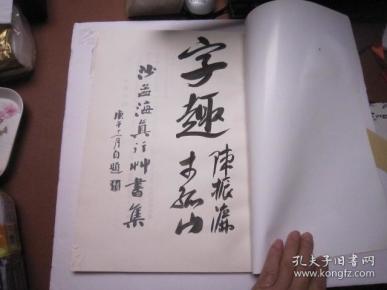 字趣
陳振濂
孤山
沙孟海真行艸書集
庚午十二月自題
孔夫子旧书网
kongfz.com